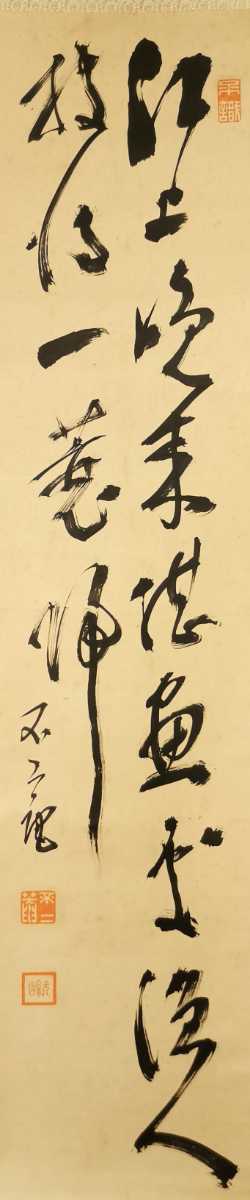 江上晩来堪畫處漁人
披得一蓑帰
不二